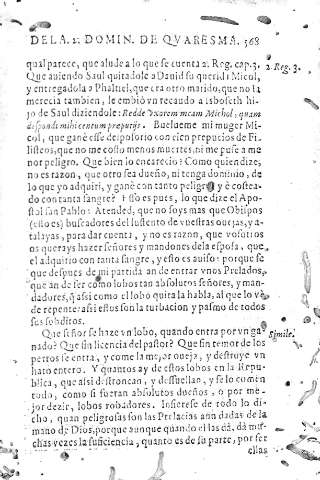 DE LA 2. DOMIN. DE QVARESMA. 368
qual parece, que alude a lo que se cuenta 2. Reg. cap. 3.
2. Reg. 3.
Que auiendo Saul quitadole a Dauid su querida Micol,
y entregadola a Phaltiel, que era otro marido, que no la
merecia tambien, le embió vn recaudo a Isboseth hi-
jo de Saul diziendole: Redde vxorem meam Michol, quam
despondi mihi centum preputijs. Buelueme mi muger Mi-
col, que gané esse desposorio con cien prepucios de Fi-
listeos, que no me costó menos muertes, ni me puse a me
nor peligro. Que bien lo encarecio! Como quien dize,
no es razon, que otro sea dueño, ni tenga dominio, de
lo que yo adquirí, y gané con tanto peligro y è costea-
do con tanta sangre? Esso es pues, lo que dize el Apo-
stol san Pablo: Atended, que no soys mas que Obispos
(esto es) buscadores del sustento de vuestras ouejas, y a-
talayas, para dar cuenta, y no es razon, que vosotros
os querays hazer señores y mandones de la esposa, que
el adquirio con tanta sangre, y esto es auiso: porque se
que despues de mi partida an de entrar vnos Prelados,
que an de ser como lobos tan absolutos señores, y man-
dadores, q̃ assi como el lobo quita la habla, al que lo vè
de repente: assi estos son la turbacion y pasmo de todos
sus subditos.
Que señor se haze vn lobo, quando entra por vn ga-
Simile.
nado? Que sin licencia del pastor? Que sin temor de los
perros se entra, y come la mejor oueja, y destruye vn
hato entero. Y quantos ay de estos lobos en la Repu-
blica, que assi destroncan, y dessuellan, y se lo comen
todo, como si fueran absolutos dueños, o por me-
jor dezir, lobos robadores. Infierese de todo lo di-
cho, quan peligrosas son las Prelacias aun dadas de la
mano de Dios, porque aunque quando el las dà, dà mu-
chas vezes la suficiencia, quanto es de su parte, por ser
ellas